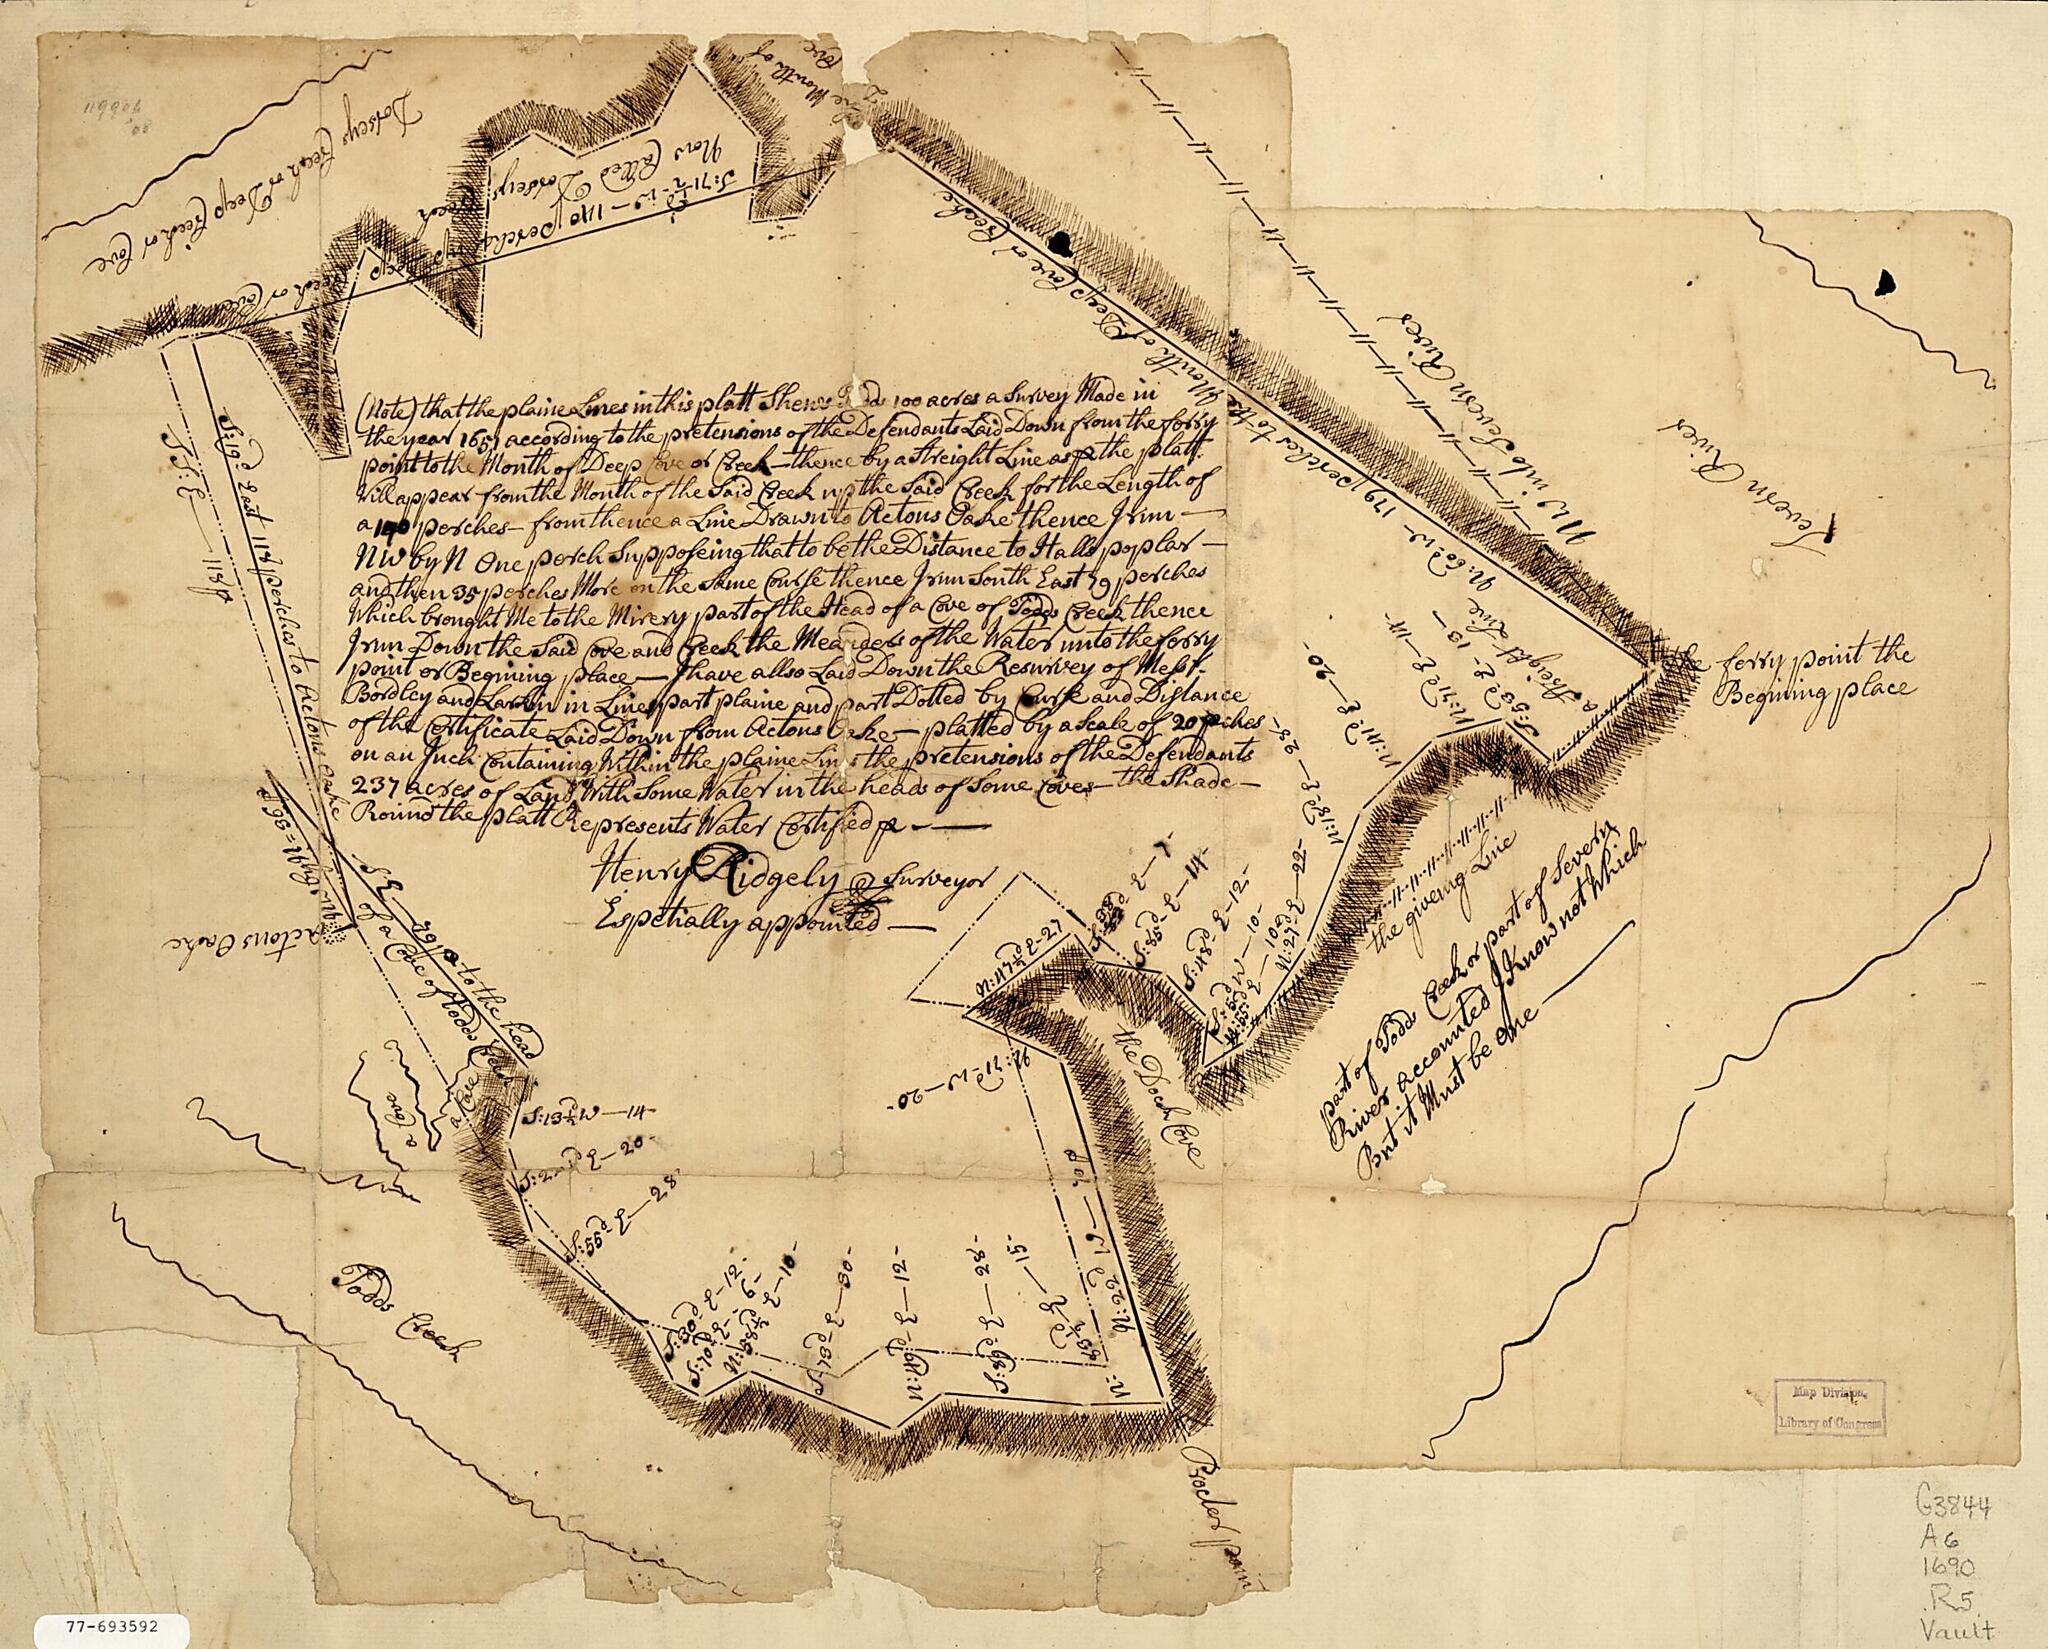 119904
08
Dorseys Creek or Deep Creek or Cove
the Mouth of
Cove
S:71½d W—140 perches up Deep Creek or Cove
Now Called Dorseys Creek
N:60d W—179 perches to the Mouth of Deep Cove or Creeke
a Streight Line
NW into Severn River
Severn River
the ferry point the
Begining place
S:19d East 118 perches to Actons Oake
S S:E—118p
(Note) that the plaine Lines in this platt Shews Todds 100 acres a Survey Made in
the year 1651 according to the pretensions of the Defendants Laid Down from the ferry
point to the Mouth of Deep Cove or Creek—thence by a streight Line as p the platt
will appear from the Mouth of the Said Creek up the Said Creek for the Length of
a 140 perches—from thence a Line Drawn to Actons Oake thence I run—
NW by N One perch Supposeing that to be the Distance to Halls poplar—
and then 35 perches More on the Same Course thence I run South East 79 perches
Which brought Me to the Mirery part of the Head of a Cove of Todds Creek thence
I run Down the Said Cove and Creek the Meanders of the Water unto the ferry
point or Begining place—I have allso Laid Down the Resurvey of Messrs
Bordley and Larkin in Lines part plaine and part Dotted by Course and Distance
of the Certificate Laid Down from Actons Oake—platted by a scale of 20 pches
on an Inch Containing Within the plaine Lines the pretensions of the Defendants
237 acres of Land With Some Water in the heads of Some Coves—the Shade—
Round the platt Represents Water Certified p—
Henry Ridgely Surveyor
Espetially appointed—
NW by N=36p
Actons Oake
S E—79p—to the head
of a Cove of Todds Creek
a Cove
a Cove
S:13½W—14—
S:2—d E—20—
S:55d E—28
S:30d E—12—
S:70d E—6—
N:58½d E—10—
S:73d E—30—
E—12—
E—28—
N:83½d E—15—
N:22d W—70p
N:71d W—20—
N:47½d E—27
E—7—
S:85d E—14—
S:48d E—12—
S:5d W—10—
N:65d E—10
N:27d E—22—
N:18d E—28—
N:41d E—20—
N:71d E—14—
S:53d E—13—
the Dock Cove
the giveing Line
part of Todds Creek or part of Severn
River accounted I Know not Which
But it Must be One—
Todds Creek
Procter poin
Map Division,
Library of Congress
G3844
A6
1690
.R5
Vault
77-693592